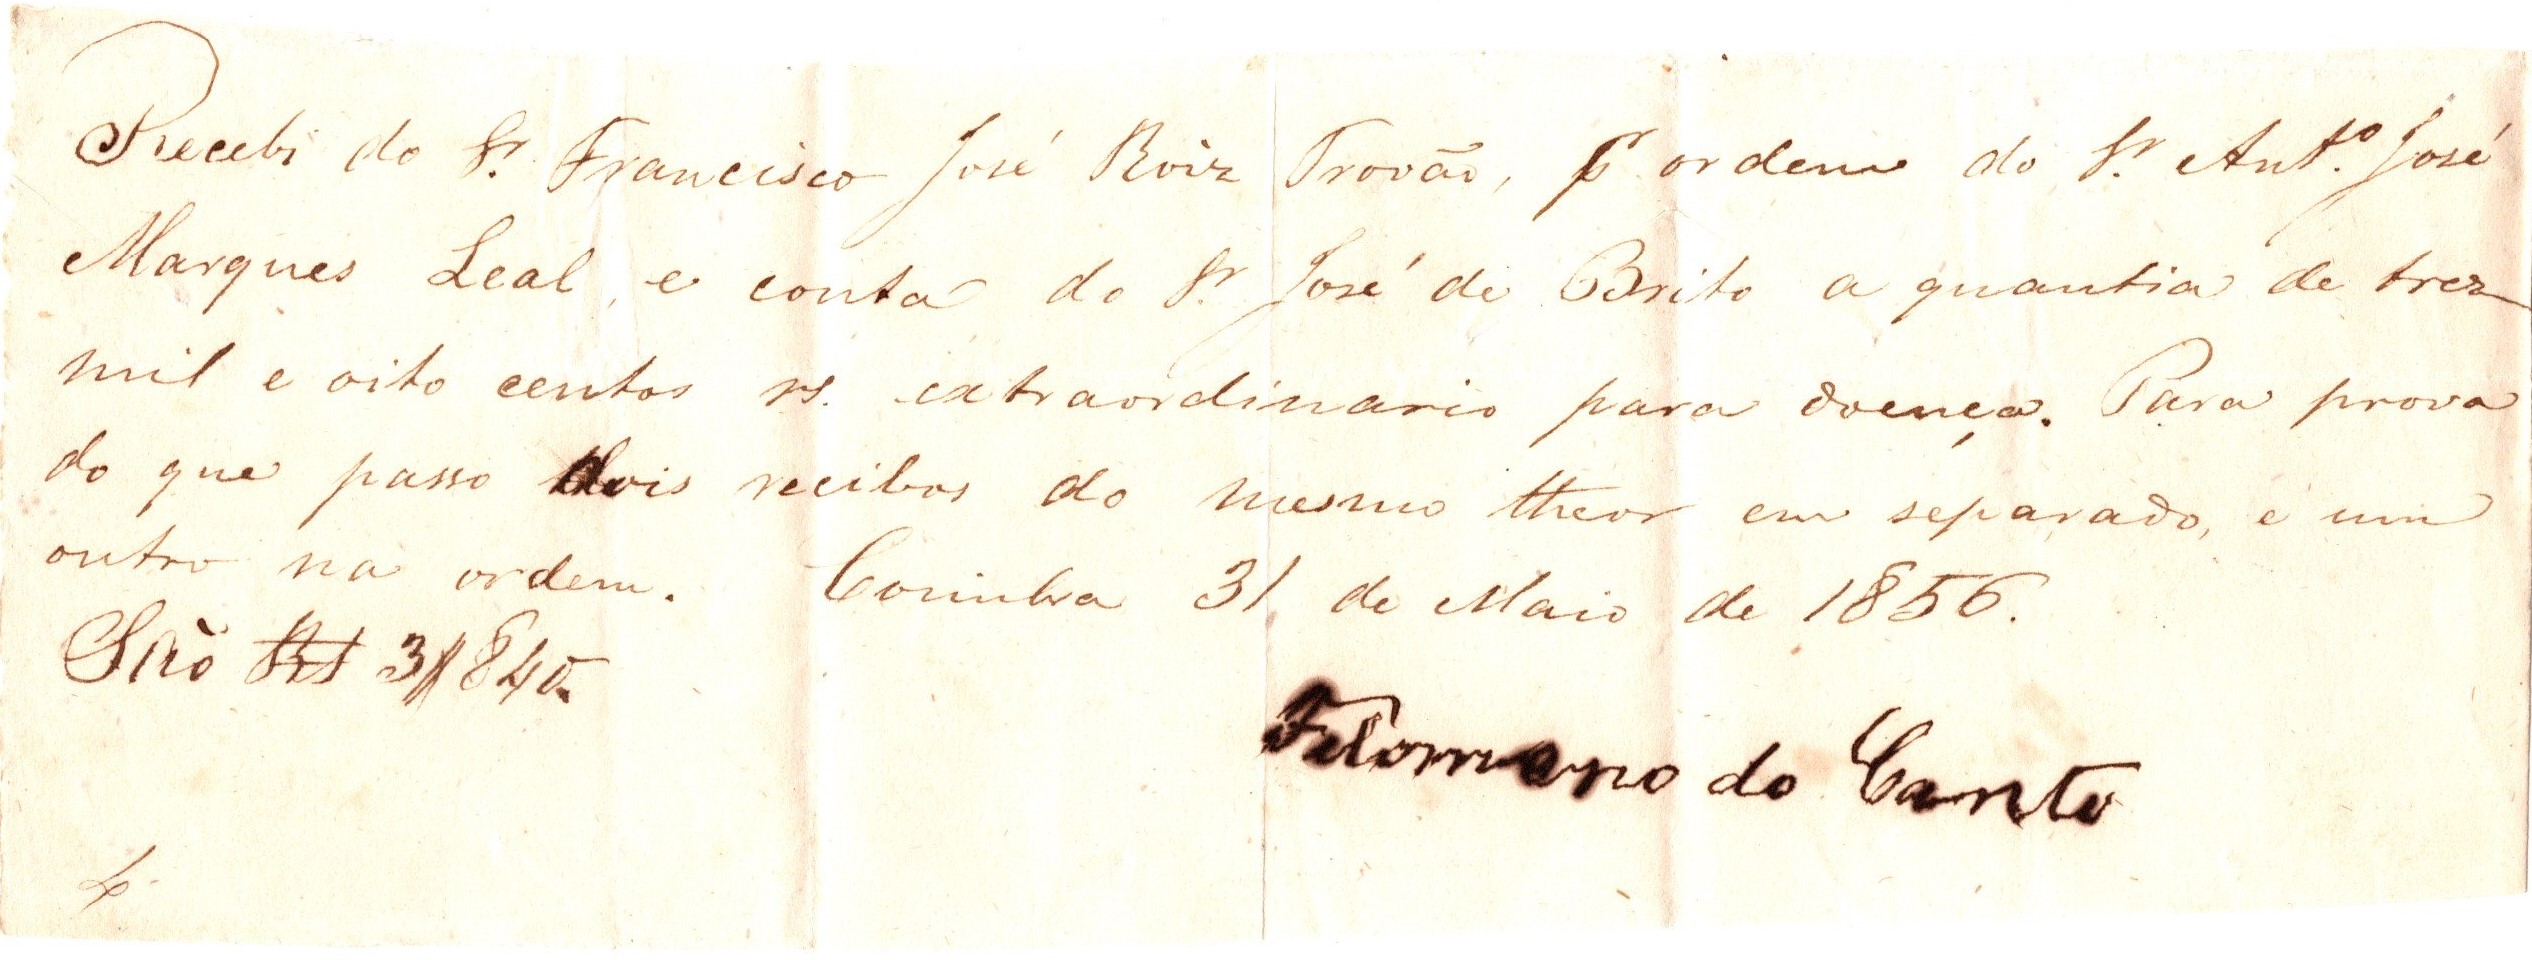 Recebi do Sr. Francisco José Roiz Trovão, pr ordem do Sr. Antº. José
Marques Leal, e conta do Sr. José de Brito a quantia de trez
mil e oito centos rs. extraordinario para doença. Para prova
do que passo dois recibos do mesmo theor em separado, e um
outro na ordem. Coimbra 31 de Maio de 1856.
São Rs 3$840.
do Canto